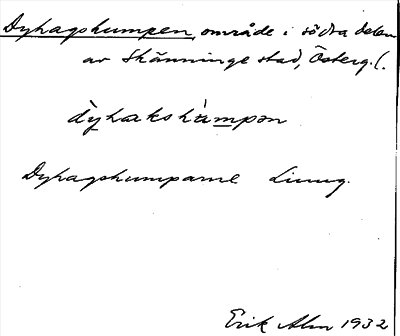 Dyhagskumpen, område i södra delen
av Skänninge stad, Österg. l.
dyhakskumpən
Dyhagskumparne
Erik Alm 1932